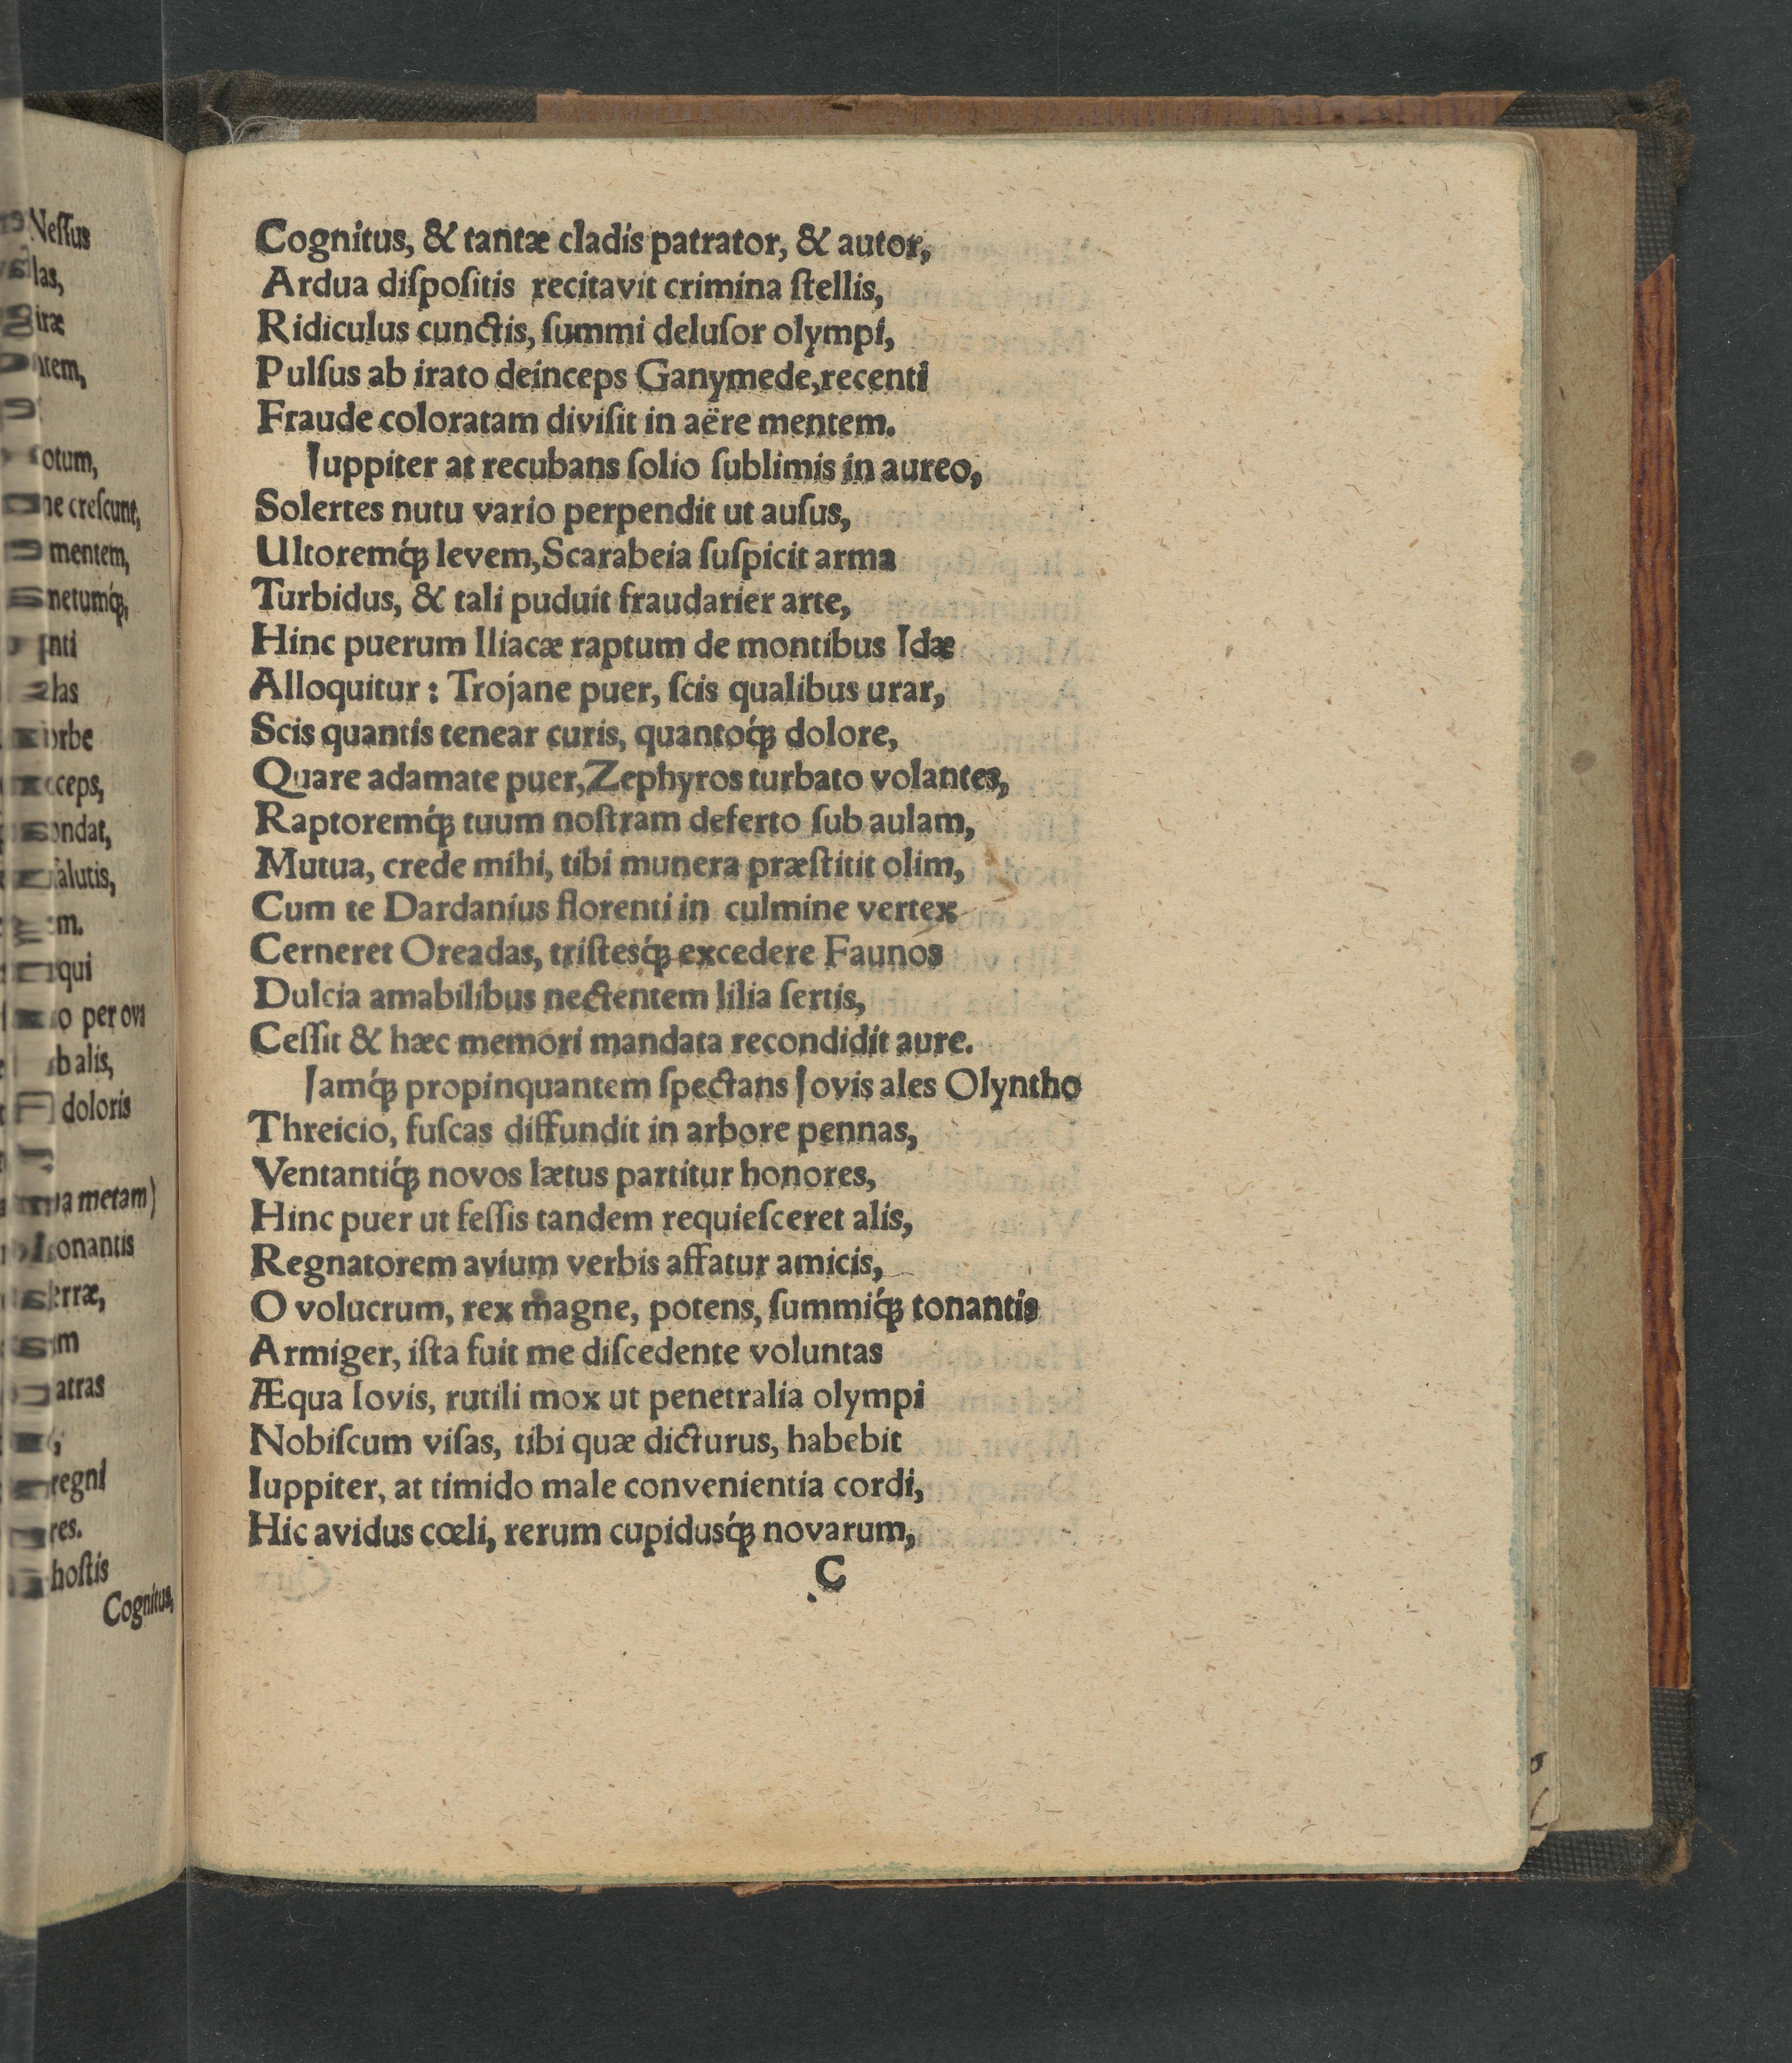 Neſſus
las,
iræ
ntem,
otum,
ne creſcunt,
mentem,
netumq́;,
nti
las
orbe
ceps,
ondat,
ſalutis,
em.
qui
o per ova
balis,
doloris
ua metam)
onantis
erræ,
m
atras
regni
res.
hoſtis
Cognitus,
Cognitus, & tantæ cladis patrator, & autor,
Ardua diſpoſitis recitavit crimina ſtellis,
Ridiculus cunctis, ſummi deluſor olympi,
Pulſus ab irato deinceps Ganymede,recenti
Fraude coloratam diviſit in aëre mentem.
Iuppiter at recubans ſolio ſublimis in aureo,
Solertes nutu vario perpendit ut auſus,
Ultoremq́; levem,Scarabeia ſuſpicit arma
Turbidus, & tali puduit fraudarier arte,
Hinc puerum Iliacæ raptum de montibus Idæ
Alloquitur : Trojane puer, ſcis qualibus urar,
Scis quantis tenear curis, quantoq́; dolore,
Quare adamate puer,Zephyros turbato volantes,
Raptoremq́; tuum noſtram deferto ſub aulam,
Mutua, crede mihi, tibi munera præſtitit olim,
Cum te Dardanius florenti in culmine vertex
Cerneret Oreadas, triſtesq́; excedere Faunos
Dulcia amabilibus nectentem lilia ſertis,
Ceſſit & hæc memori mandata recondidit aure.
Jamq́; propinquantem ſpectans Jovis ales Olyntho
Threicio, fuſcas diffundit in arbore pennas,
Ventantiq́; novos lætus partitur honores,
Hinc puer ut feſſis tandem requieſceret alis,
Regnatorem avium verbis affatur amicis,
O volucrum, rex magne, potens, ſummiq́; tonantis
Armiger, iſta fuit me diſcedente voluntas
Æqua Iovis, rutili mox ut penetralia olympi
Nobiſcum viſas, tibi quæ dicturus, habebit
Iuppiter, at timido male convenientia cordi,
Hic avidus cœli, rerum cupidusq́; novarum,
C